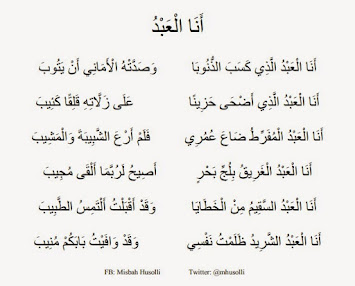 أَنَا الْعَبْدُ
أَنَا الْعَبْدُ الَّذِي كَسَبَ الذُّنُوبَا وَصَدَّتْهُ الْأَمَانِي أَنْ يَتُوبَ
أَنَا الْعَبْدُ الَّذِي أَضْحَى حَزِينًا عَلَى زَلَّاتِهِ قَلِقًا كَئِيبَ
أَنَا الْعَبْدُ الْمُفَرِّطُ ضَاعَ عُمُرِي فَلَمْ أَرْعَ الشَّبِيبَةَ وَالْمَشِيبَ
أَنَا الْعَبْدُ الْغَرِيقُ بِلُجِّ بَحْرٍ أَصِيحُ لَرُبَّمَا أَلْقَى مُجِيبَ
أَنَا الْعَبْدُ السَّقِيمُ مِنْ الْخَطَايَا وَقَدْ أَقْبَلْتُ أَلْتَمِسُ الطَّبِيبَ
أَنَا الْعَبْدُ الشَّرِيدُ ظَلَمْتُ نَفْسِي وَقَدْ وَافَيْتُ بَابَكُمْ مُنِيبَ
FB: Misbah Husolli Twitter: @mhusolli